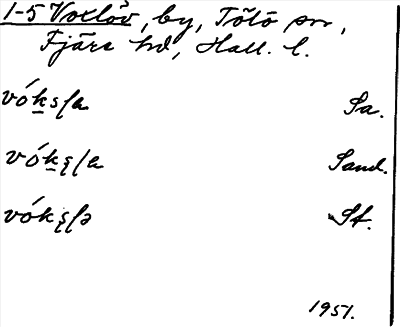 1-5 Voxlöv, by, Tölö sn,
Fjäre hd, Hall. l.
vóksla Sa.
vókşla Sand.
vókşlə St.
1951.